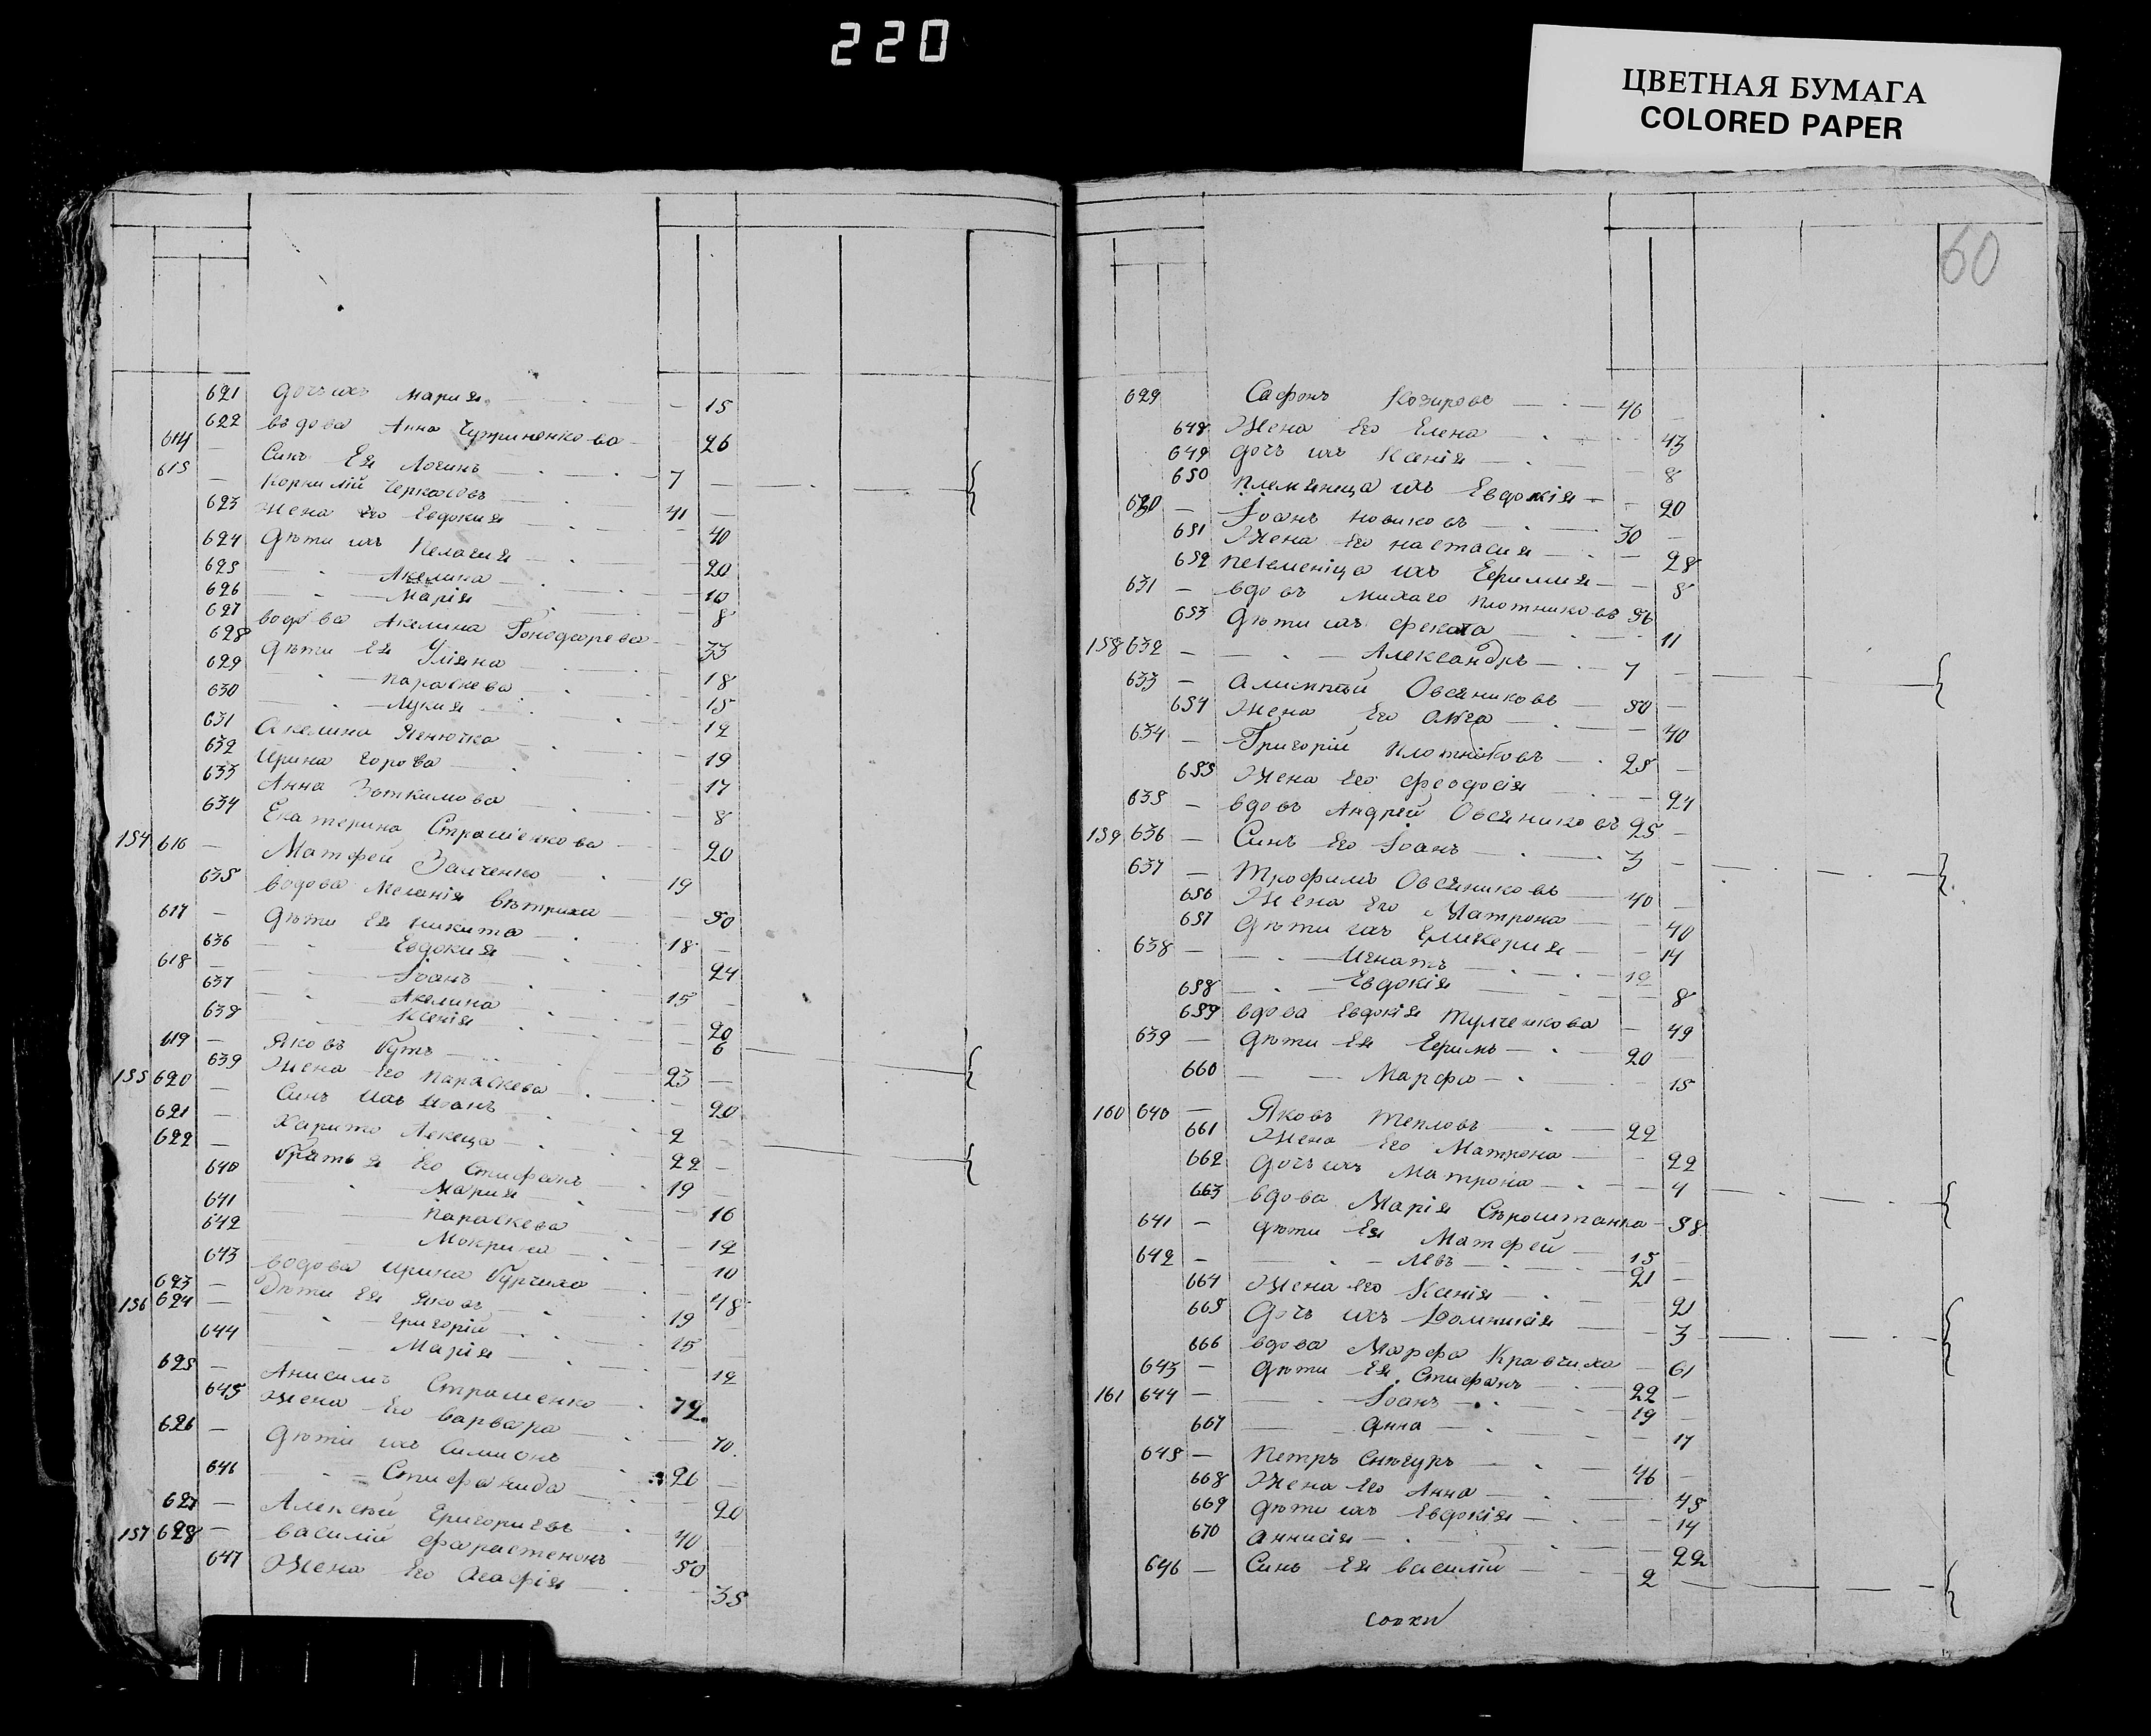 220
ЦВЕТНАЯ БУМАГА
COLORED PAPER
60
621 дочь ихъ Мария 15
622 вьдова Анна Чуприненкова 26
614 Синъ Ея Логинъ 7
615 Корнилий Черкасовъ 41
623 Жена Его Евдокия 40
624 Дѣти ихъ Пелагия 20
625 Акелина 10
626 Марiя 8
627 водова Акелина 33
628 Дѣти Ея Улiяна 18
629 Параскева 15
630 Лукия 12
631 Акелина 19
632 Ирина 17
633 Анна 8
634 Екатерина Страшенкова 20
154 616 Матфей Заиченко 19
635 водова Меланiя Вѣтриха 50
617 Дѣти Ея Никита 18
636 Евдокия 24
618 Iоанъ 15
637 Акелина 20
638 Ксенiя 6
619 Яковъ Бутъ 23
639 Жена Его Параскева 20
155 620 Синъ Ихъ Иванъ 2
621 Харито Лекеца 22
622 Братья Его Стифанъ 19
640 Мария 16
641 Параскева 12
642 Мокрина 10
643 водова Ирина 48
623 Дѣти Ея Яковъ 19
156 624 Григорiй 15
644 Марiя 12
625 Анисимъ Страшенко 72
645 Жена Его Варвара 70
626 Дѣти ихъ Симионъ 26
646 Стифанида 20
627 Алексѣй Григориевъ 40
157 628 Василiй 50
647 Жена Его Агафiя 35
629 Сафонъ Козировъ 46
648 Жена Его Елена 43
649 дочь ихъ Ксенiя 8
650 племяница ихъ Евдокiя 20
630 Iоанъ Новиковъ 30
651 Жена Его Настасия 28
652 ихъ Ефимия 8
631 вдовъ Михаго Плотниковъ 56
653 Дѣти ихъ Феката 11
158 632 Александръ 7
633 Овсяниковъ 50
654 Жена Его Олга 40
634 Григорiй Плотниковъ 25
655 Жена Его Феодосiя 24
635 вдовъ Андрей Овсяниковъ 25
159 636 Синъ Его Iоанъ 3
637 Трофимъ Овсяниковъ 40
656 Жена Его Матрона 40
657 Дѣти ихъ Гликерия 14
638 Игнатъ 12
658 Евдокiя 8
659 вдова Евдокiя 49
639 Дѣти Ея Ефимъ 20
660 Марфа 15
160 640 Яковъ Тепловъ 22
661 Жена Его Матрона 22
662 дочь ихъ Матрона 4
663 вдова Марiя 58
641 дѣти Ея Матфей 15
642 Левъ 21
664 Жена его Ксенiя 21
665 Дочь ихъ Домникiя 3
666 вдова Марфа Кравчиха 61
643 дѣти Ея Стифанъ 22
161 644 Iоанъ 19
667 Анна 17
645 Петръ Снѣгуръ 46
668 Жена Его Анна 45
669 дѣти ихъ Евдокiя 14
670 Аннисiя 22
646 Синъ Ея Василiй 2